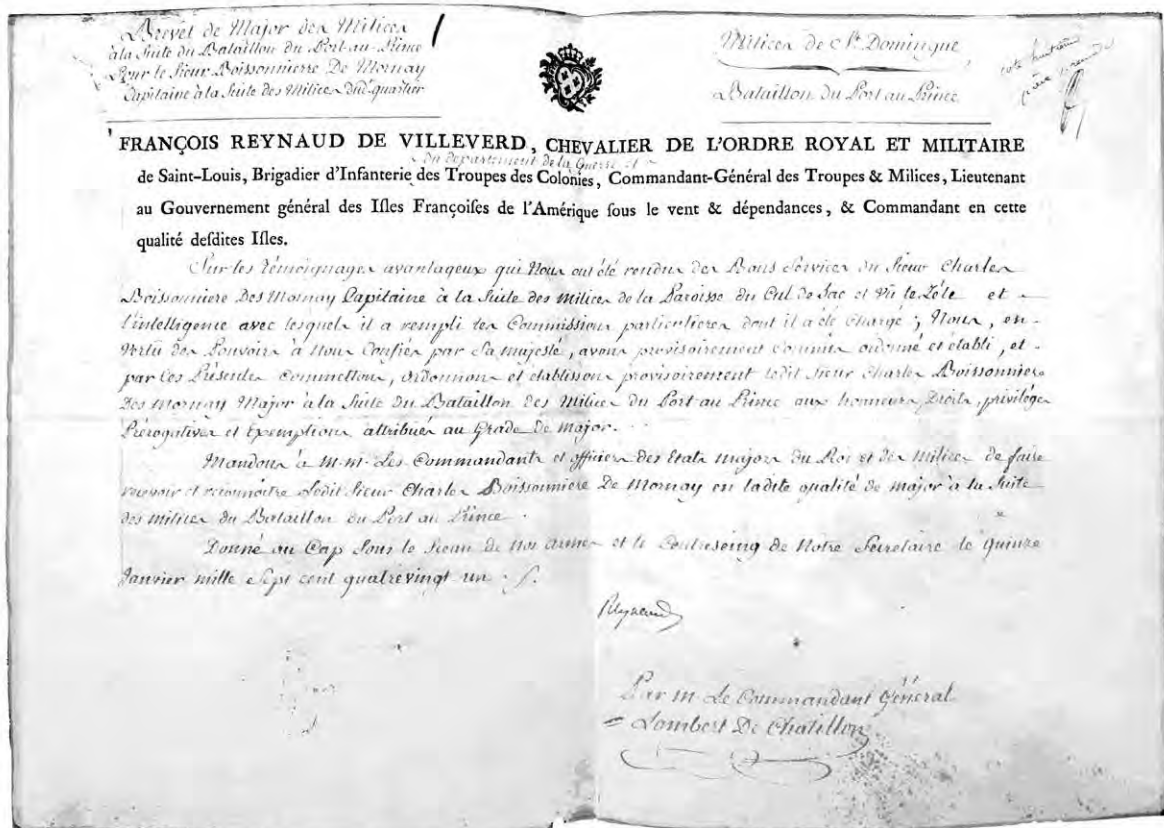 Brevet de Major des Milices
à la Suite du Bataillon du Port-au-Prince
Pour le Sieur Boissonniere De Mornay
Capitaine à la Suite des Milices Dud. quartier
Milices de St. Domingue
Bataillon du Port au Prince
cote huitieme
FRANÇOIS REYNAUD DE VILLEVERD, CHEVALIER DE L'ORDRE ROYAL ET MILITAIRE
du departement de la Guerre et
de Saint-Louis, Brigadier d'Infanterie des Troupes des Colonies, Commandant-Général des Troupes & Milices, Lieutenant
au Gouvernement général des Iſles Françoiſes de l'Amérique ſous le vent & dépendances, & Commandant en cette
qualité deſdites Iſles.
Sur les témoignages avantageux qui Nous ont été rendus des Bons Services du Sieur Charles
Boissonniere Des Mornay Capitaine à la Suite des Milices de la Paroisse du Cul de Sac et Vu le Zéle et
l'intelligence avec lesquels il a rempli les Commissions particulieres dont il a été Chargé; Nous, en
Vertu des Pouvoirs à Nous Confiés par Sa Majesté, avons provisoirement commis ordonné et établi, et
par Ces Présentes Commettons, Ordonnons et etablissons provisoirement ledit Sieur Charles Boissonniere
Des Mornay Major à la Suite du Bataillon des Milices du Port au Prince aux honneurs, Droits, privilèges
Prérogatives et Exemptions attribués au Grade de Major.
Mandons à M.M. Les Commandants et officiers des Etats majors du Roi et des Milices de faire
recevoir et reconnoitre Ledit Sieur Charles Boissonniere De Mornay en ladite qualité de Major à la Suite
des Milices du Bataillon du Port au Prince.
Donné au Cap Sous le Sceau de Nos armes et le Contreseing de Notre Secretaire le Quinze
Janvier mille Sept cent quatrevingt un ./.
Reynaud
Par M. Le Commandant Général
Lombert De Chatillon